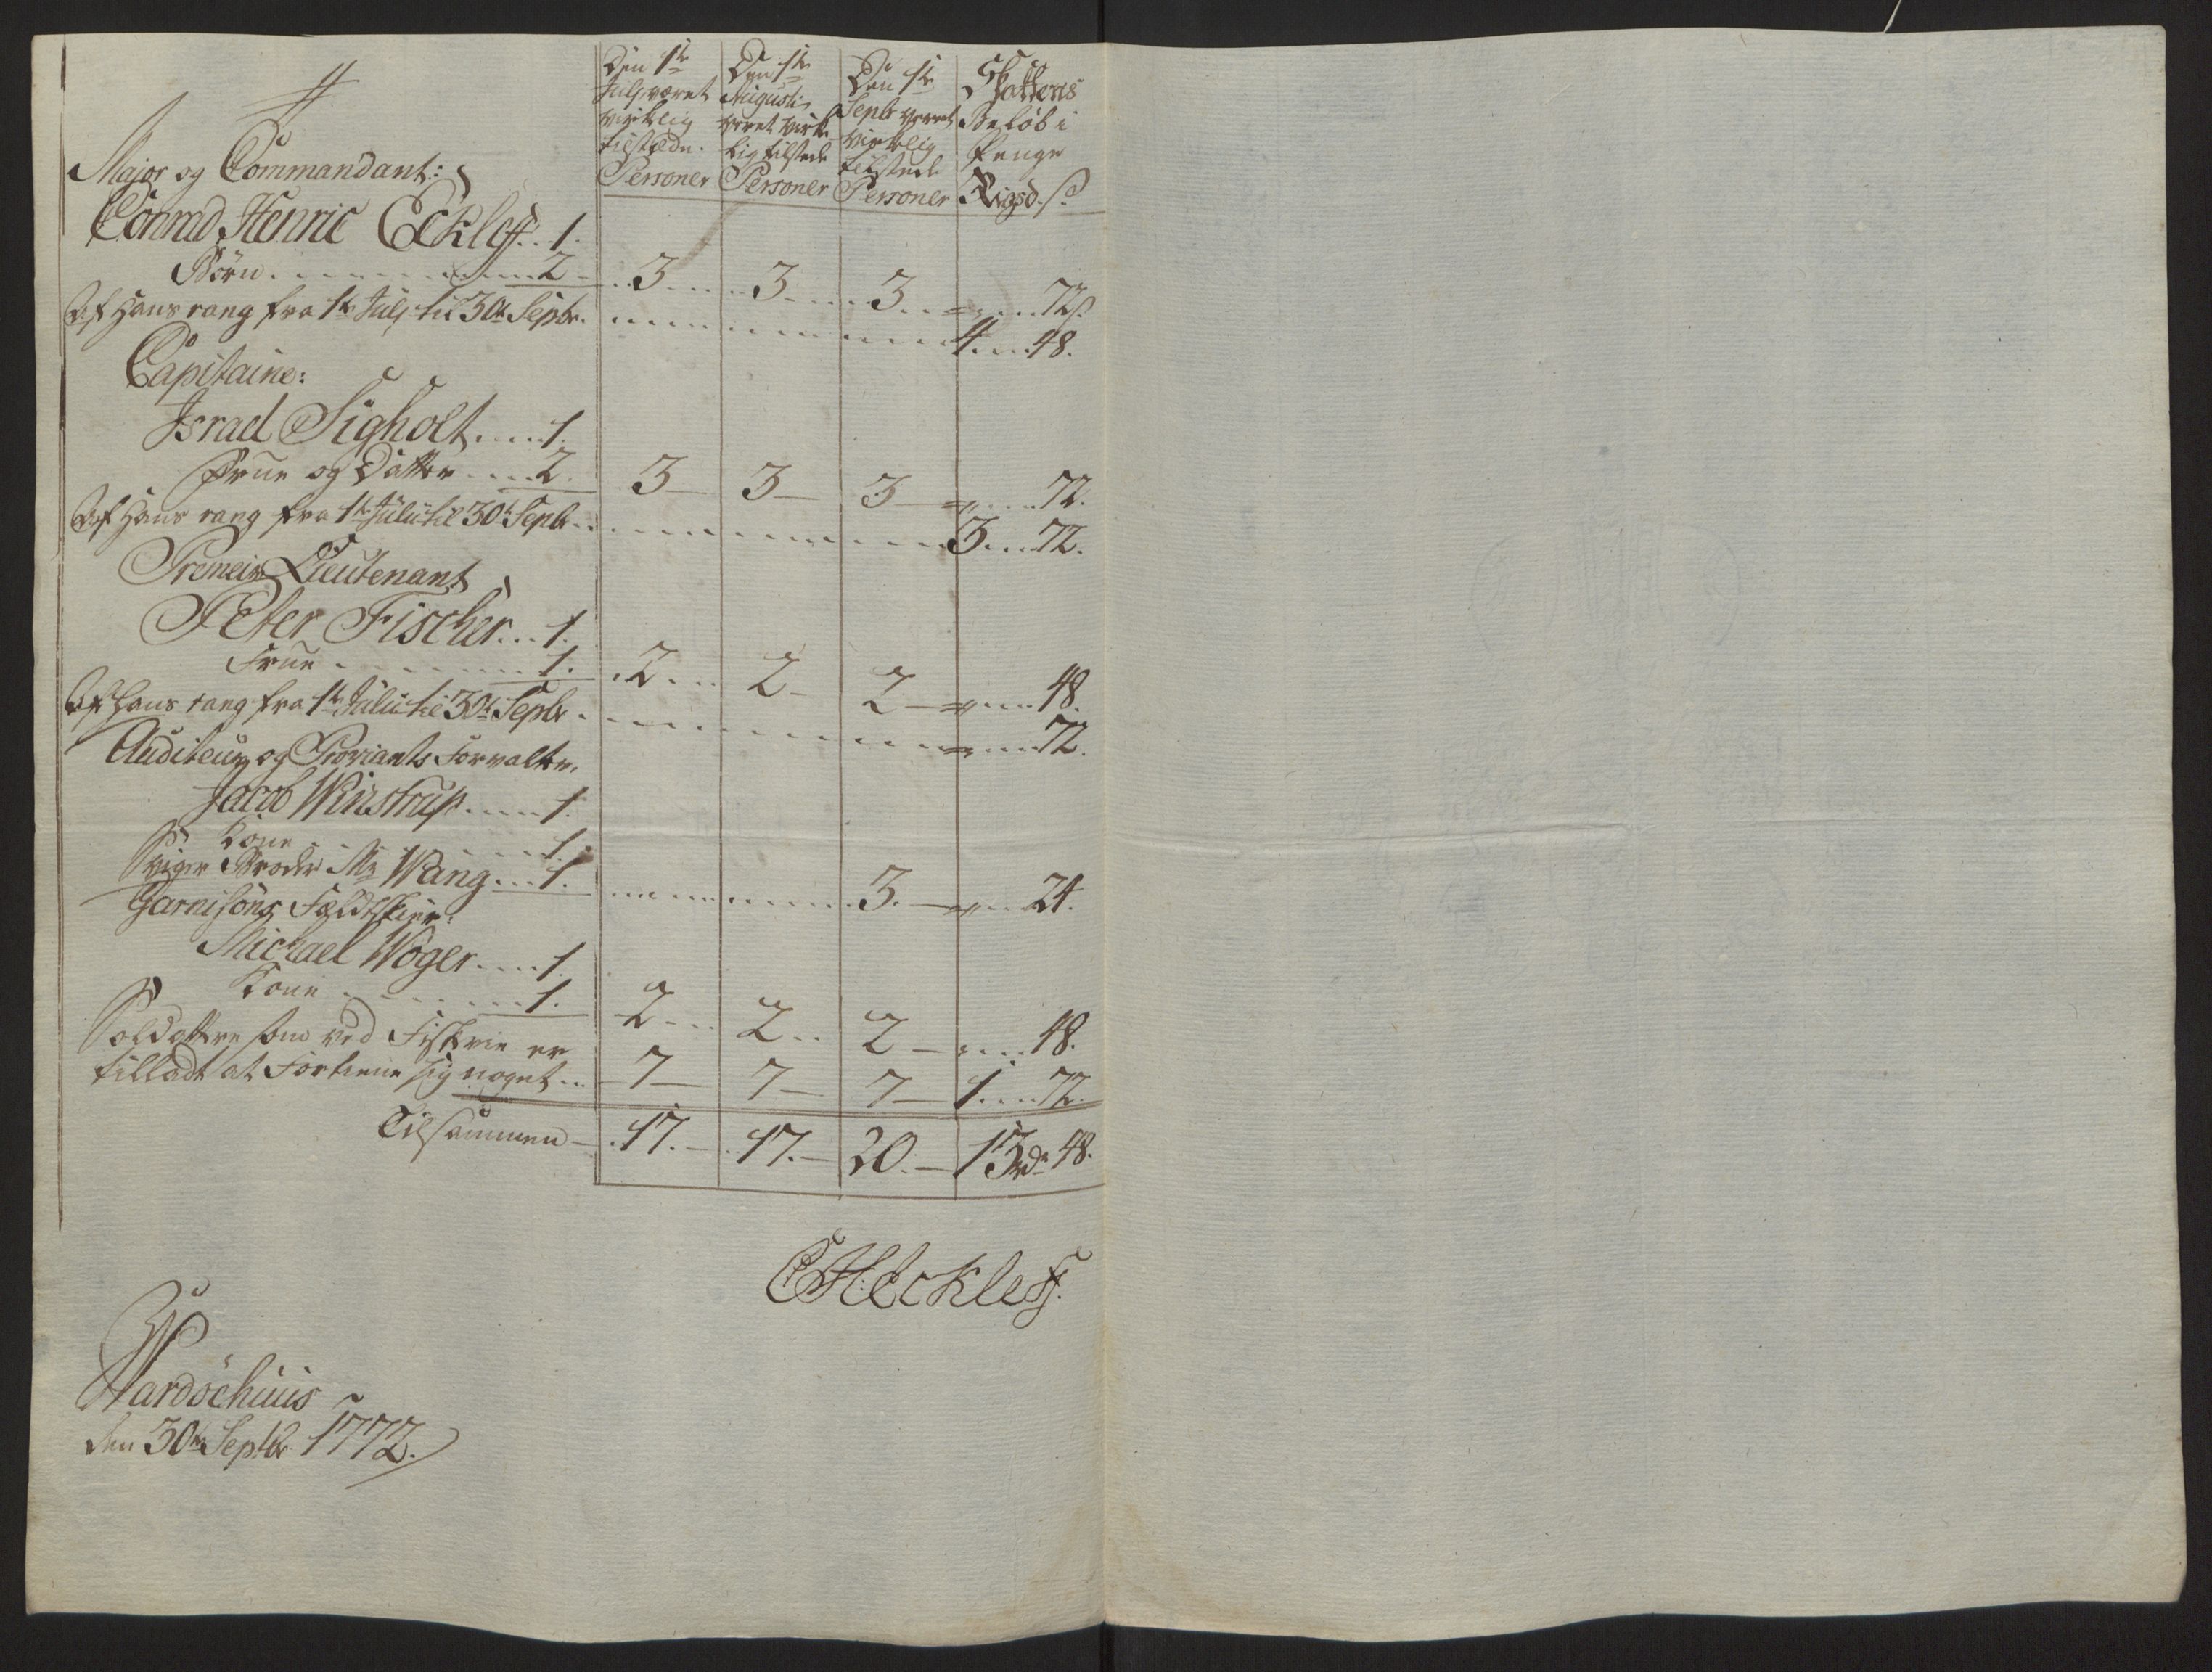 Den 1te July været virklig tilstæde. Personer
Den 1te Augusti været virklig tilstede Personer
Den 1te Septr været virklig tilstede Personer
Skattens Beløb i Penge Rigsd. s
Major og Commandant:
Conrad Henric Eckleff.. 1.
Börn . . . . . 2 - 3 . . . 3 . . . 3 . . = . . 72 s
Af Hans rang fra 1te July til 30te Septr. . . . . 4 . . 48.
Capitaine:
Israel Sigholt . . . . 1.
Frue og Datter . . . 2. 3 — 3 — 3 — = . . 72.
Af Hans rang fra 1te Julii til 30te Septr . . . . 3 . . . 72.
Premeir Lieutenant
Peter Fischer . . . 1.
Frue . . . . . 1. 2 . . . 2 — 2 — = . . 48.
Af Hans rang fra 1te Julii til 30te Septr . . . . = . . 72.
Auditeur og Proviants Forvalter,
Jacob Winstrup . . . . . 1.
Kone . . . . . 1.
Sviger Broder Mr Wang . . . 1. . . . . 3. — = . . 24.
Garnisons Feldtskier:
Michael Woger . . . . 1.
Kone . . . . . 1. 2 - . . 2 . . 2 — = . . 48.
Soldattre som ved Fiskrie er
tilladt at Fortiene sig noget . . . 7 — 7 — 7 — 1 . . . . 72.
Tilsammen — . 17. — . 17. — 20. — 13 rdr 48.
CHEckleff.
Wardöehuus
den 30te Septbr 1772.